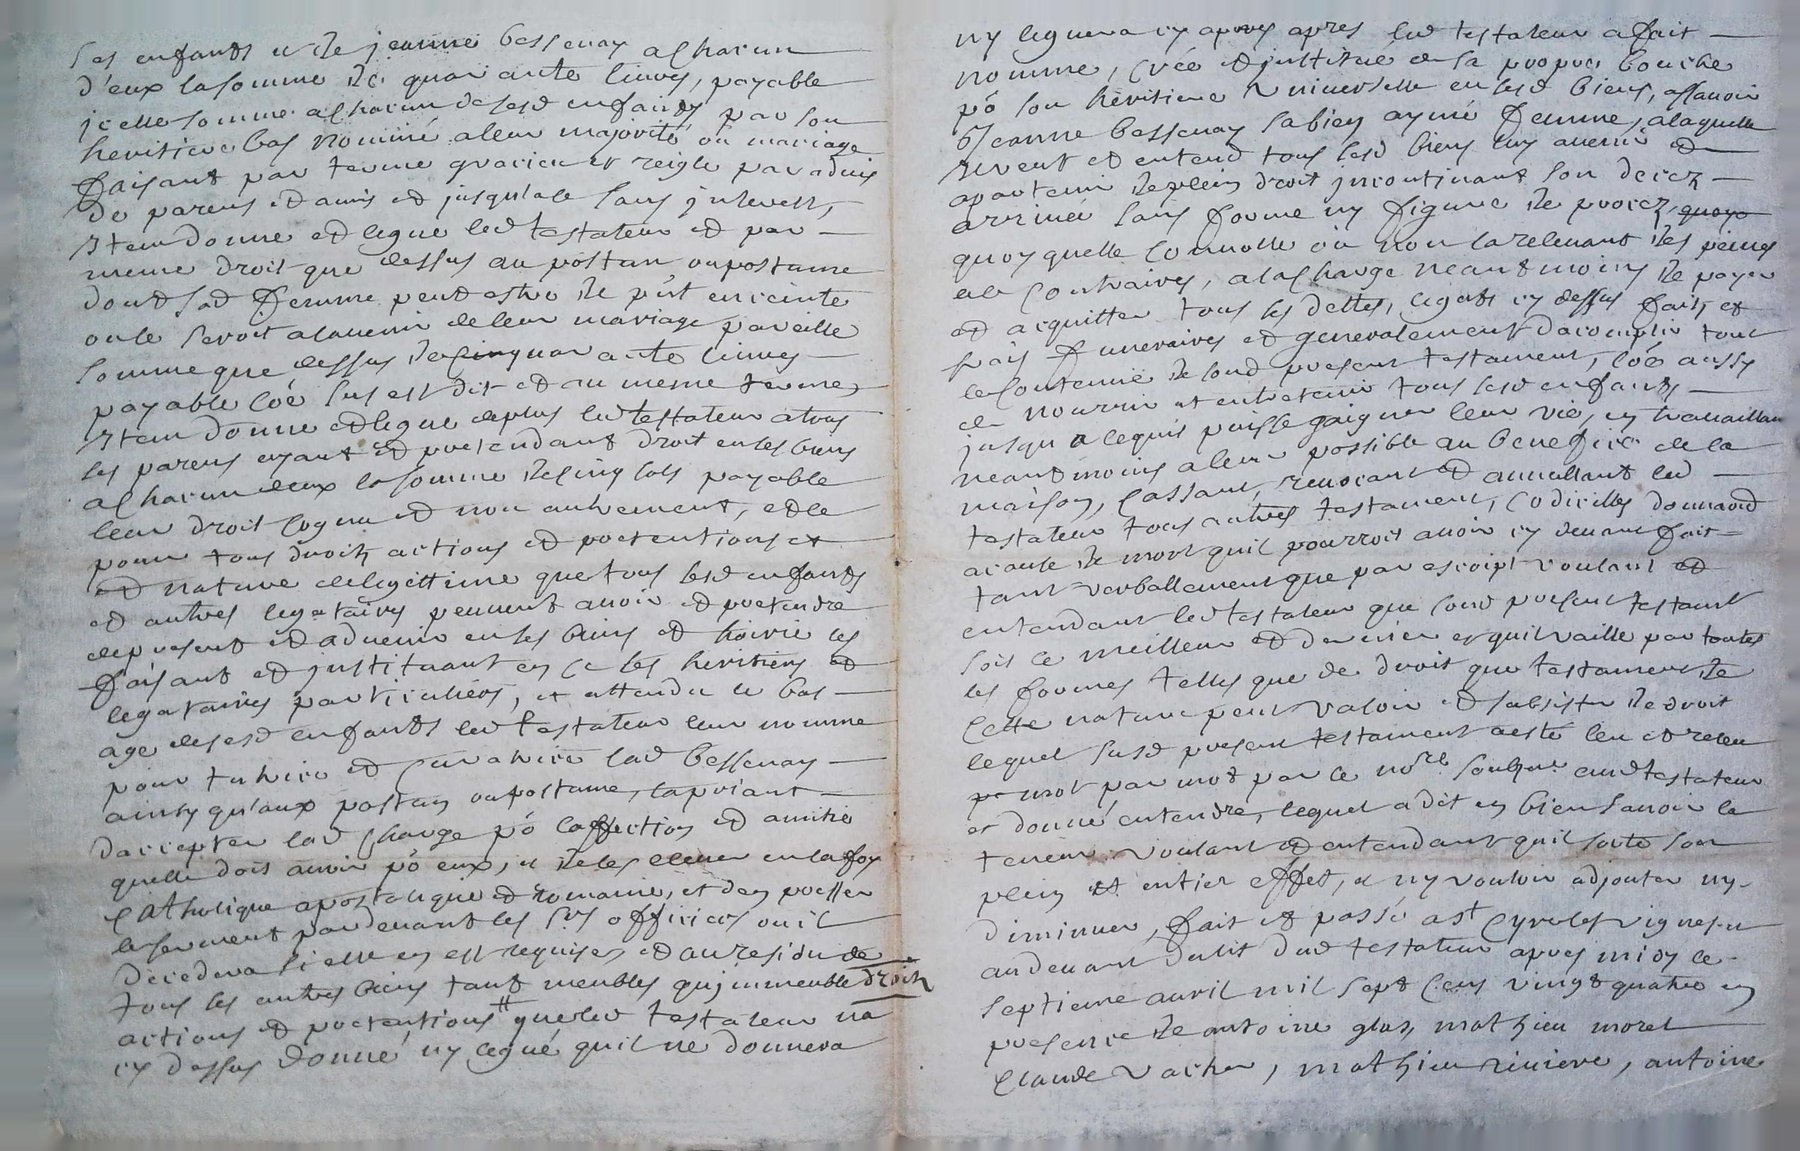 ses enfants et de jeanne bessenay a chacun
d'eux la somme de quarante livres, payable
jcelle somme a chacun desesd enfants par son
heritiere bas nommé a leur majorité ou mariage
faisant par terme gracieux reiglé par advis
de parens et amis et jusqu'alé sans jnterest,
Jtem donne et legue led testateur et par
meme droit que dessus au postan ou postame
dont sad femme peut estre de pñt enceinte
ou le seroit alavenir de leur mariage pareille
somme que dessus de quarante livres
payable côe sus est dit et au meme terme,
Jtem donne et legue de plus led testateur a tous
ses parens ayant et pretendant droit en ses biens
a chacun deux la somme de cinq sols payable
leur droit cognu et non autrement, et ce
pour tous droits actions et pretentions et
et nature de legittime que tous sesd enfants
et autres legataires peuvent avoir et pretendre
de present et advenir en ses biens et hoirie les
faisant et jnstituant en ce ses heritiers et
legataires particuliers, et attendu le bas
age desesd enfants led testateur leur nomme
pour tutrice et curatrice lad bessenay
ainsy qu'aux postan ou postame, la priant
daccepter lad charge pô laffection et amitié
quelle doit avoir pô eux, et de les elever en la foy
catholique apostolique et romaine, et den prester
le serment pardevant les srs officiers ou il
decedera si elle en est requise, et au residu de
tous les autres biens tant meubles qu'jmmeuble droits
actions et pretentions que led testateur na
cy dessus donné ny legué quil ne donnera
ny leguera cy apres apres led testateur a fait
nommé, créé et jnstitué de sa propre bouche
pô son heritiere universelle en sesd biens, assavoir
Jeanne bessenay sa bien aymé femme, a laquelle
il veut et entend tous sesd biens luy avenir et
apartenir de plein droit jncontinant son decez
arrivée sans forme ny figure de procez, quoyq
quoy quelle convolle ou non la relevant des peines
au contraires, a la charge neantmoins de payer
et acquitter tous ses dettes, legats cy dessus faits et
frais funeraires et generalement daccomplir tout
le contenue de sond present testament, côe aussy
de nourrir et entretenir tous sesd enfants
jusqu a lequis puisse gaigner leur vie, en travaillan
neantmoins a leur possible au benefice de la
maison, cassant, revocant et annullant led
testateur tous autres testament, codicilles donnaõn
a cause de mort quil pourroit avoir cy devant fait
tant verballement que par escript voulant et
entendant led testateur que sond present testamt
soit le meilleur et dernier et quil vaille par toutes
les formes telles que de droit que testament de
cette nature peut valoir et subsister de droit
lequel susd present testament a esté leu et releu
pr mot par mot par le nore soubzné aud testateur
et donné entendre, lequel a dit en bien savoir la
teneur voulant et entendant quil sorte son
plein et entier effet, et ny vouloir adjouter ny
diminuer, fait et passé a st cyr les vignes et
au devant du lit dud testateur apres midy le
septieme avril mil sept cens vingt quatre en
presence de antoine glas, mathieu morel
Claude vacher, mathieu riviere, antoine